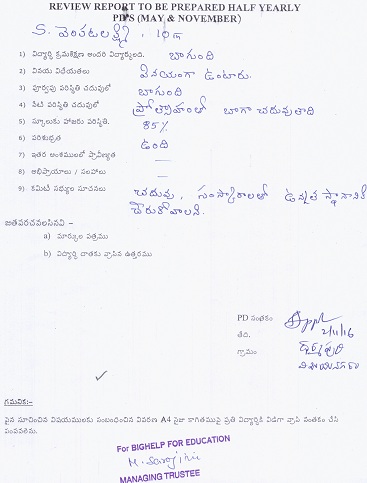 REVIEW REPORT TO BE PREPARED HALF YEARLY
PIPS (MAY & NOVEMBER)
S. వెంకటలక్ష్మి, 10th
1) విద్యార్థి క్రమశిక్షణ అందరి విద్యార్థులది. బాగుంది
2) వినయ విధేయతలు వినయంగా ఉంటారు.
3) పూర్వపు పరిస్థితి చదువులో బాగుంది
4) నేటి పరిస్థితి చదువులో ప్రోత్సాహంతో బాగా చదువుతాది
5) స్కూలుకు హాజరు పరిస్థితి. 85%
6) పరిశుభ్రత ఉంది
7) ఇతర అంశములలో ప్రావీణ్యత —
8) అభిప్రాయాలు / సలహాలు —
9) కమిటీ సభ్యుల సూచనలు చదువు, సంస్కారాలతో ఉన్నత స్థానానికి
చేరుకోవాలని.
జతపరచవలసినవి –
a) మార్కుల పత్రము
b) విద్యార్థి దాతకు వ్రాసిన ఉత్తరము
PD సంతకం
తేది. 2/11/16
గ్రామం
విజయనగరం
గమనిక:–
పైన సూచించిన విషయములకు సంబంధించిన వివరణ A4 సైజు కాగితముపై ప్రతి విద్యార్థికి విడిగా వ్రాసి సంతకం చేసి
పంపవలెను.
For BIGHELP FOR EDUCATION
M. Sarojini
MANAGING TRUSTEE